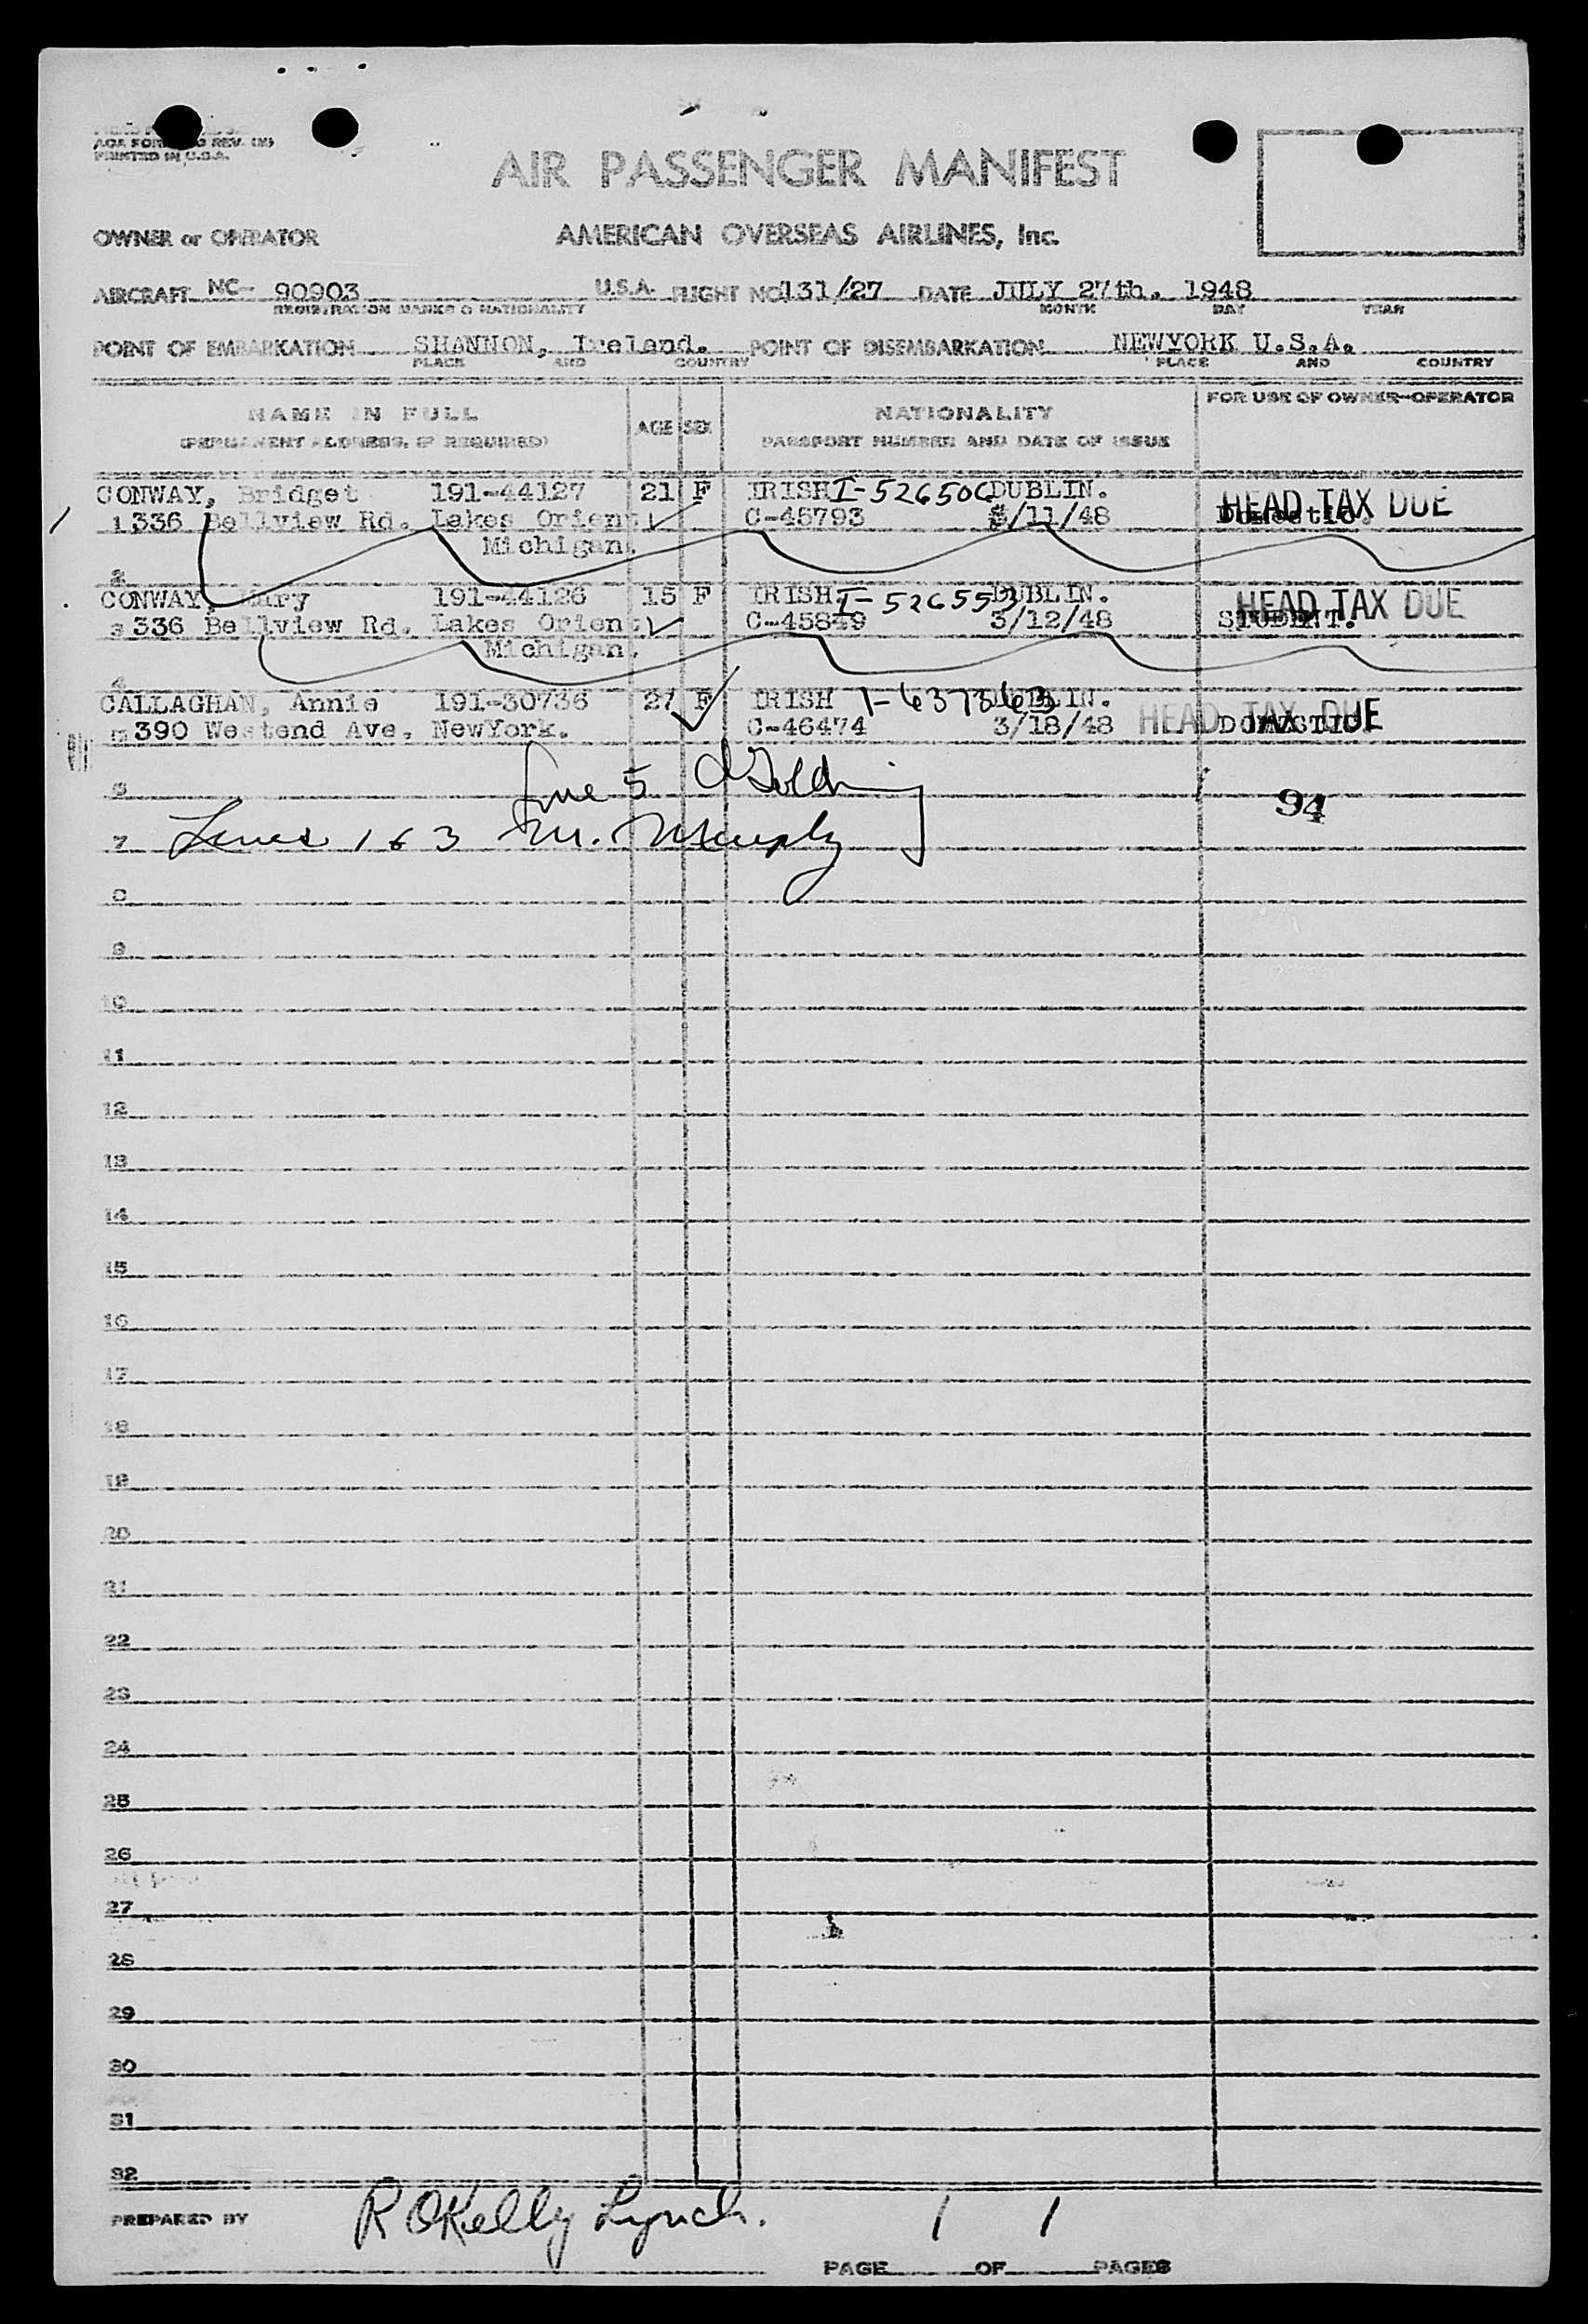 AOA FORM REV.
PRINTED IN U.S.A.
AIR PASSENGER MANIFEST
OWNER or OPERATOR AMERICAN OVERSEAS AIRLINES, Inc.
AIRCRAFT NC- 90903 U.S.A. FLIGHT NO 131/27 DATE JULY 27th. 1948
REGISTRATION MARKS & NATIONALITY MONTH DAY YEAR
POINT OF EMBARKATION SHANNON, Ireland. POINT OF DISEMBARKATION NEWYORK U.S.A.
PLACE AND COUNTRY PLACE AND COUNTRY
NAME IN FULL AGE SEX NATIONALITY FOR USE OF OWNER-OPERATOR
(PERMANENT ADDRESS, IF REQUIRED) PASSPORT NUMBER AND DATE OF ISSUE
CONWAY, Bridget 191-44127 21 F IRISH I-526506 DUBLIN. HEAD TAX DUE
1 336 Bellview Rd. Lakes Orient C-45793 3/11/48 Domestic.
Michigan.
2
CONWAY, Mary 191-44126 15 F IRISH. I-526553 DUBLIN. HEAD TAX DUE
3 336 Bellview Rd. Lakes Orient C-45849 3/12/48 STUDENT.
Michigan.
4
CALLAGHAN, Annie 191-30736 27 F IRISH 1-637363 DUBLIN. HEAD TAX DUE
5 390 Westend Ave. NewYork. C-46474 3/18/48 DOMESTIC
Line 5
6 94
7 Lines 1 & 3 M. Murphy
8
9
10
11
12
13
14
15
16
17
18
19
20
21
22
23
24
25
26
27
28
29
30
31
32
PREPARED BY R OKelly Lynch.
PAGE 1 OF 1 PAGES